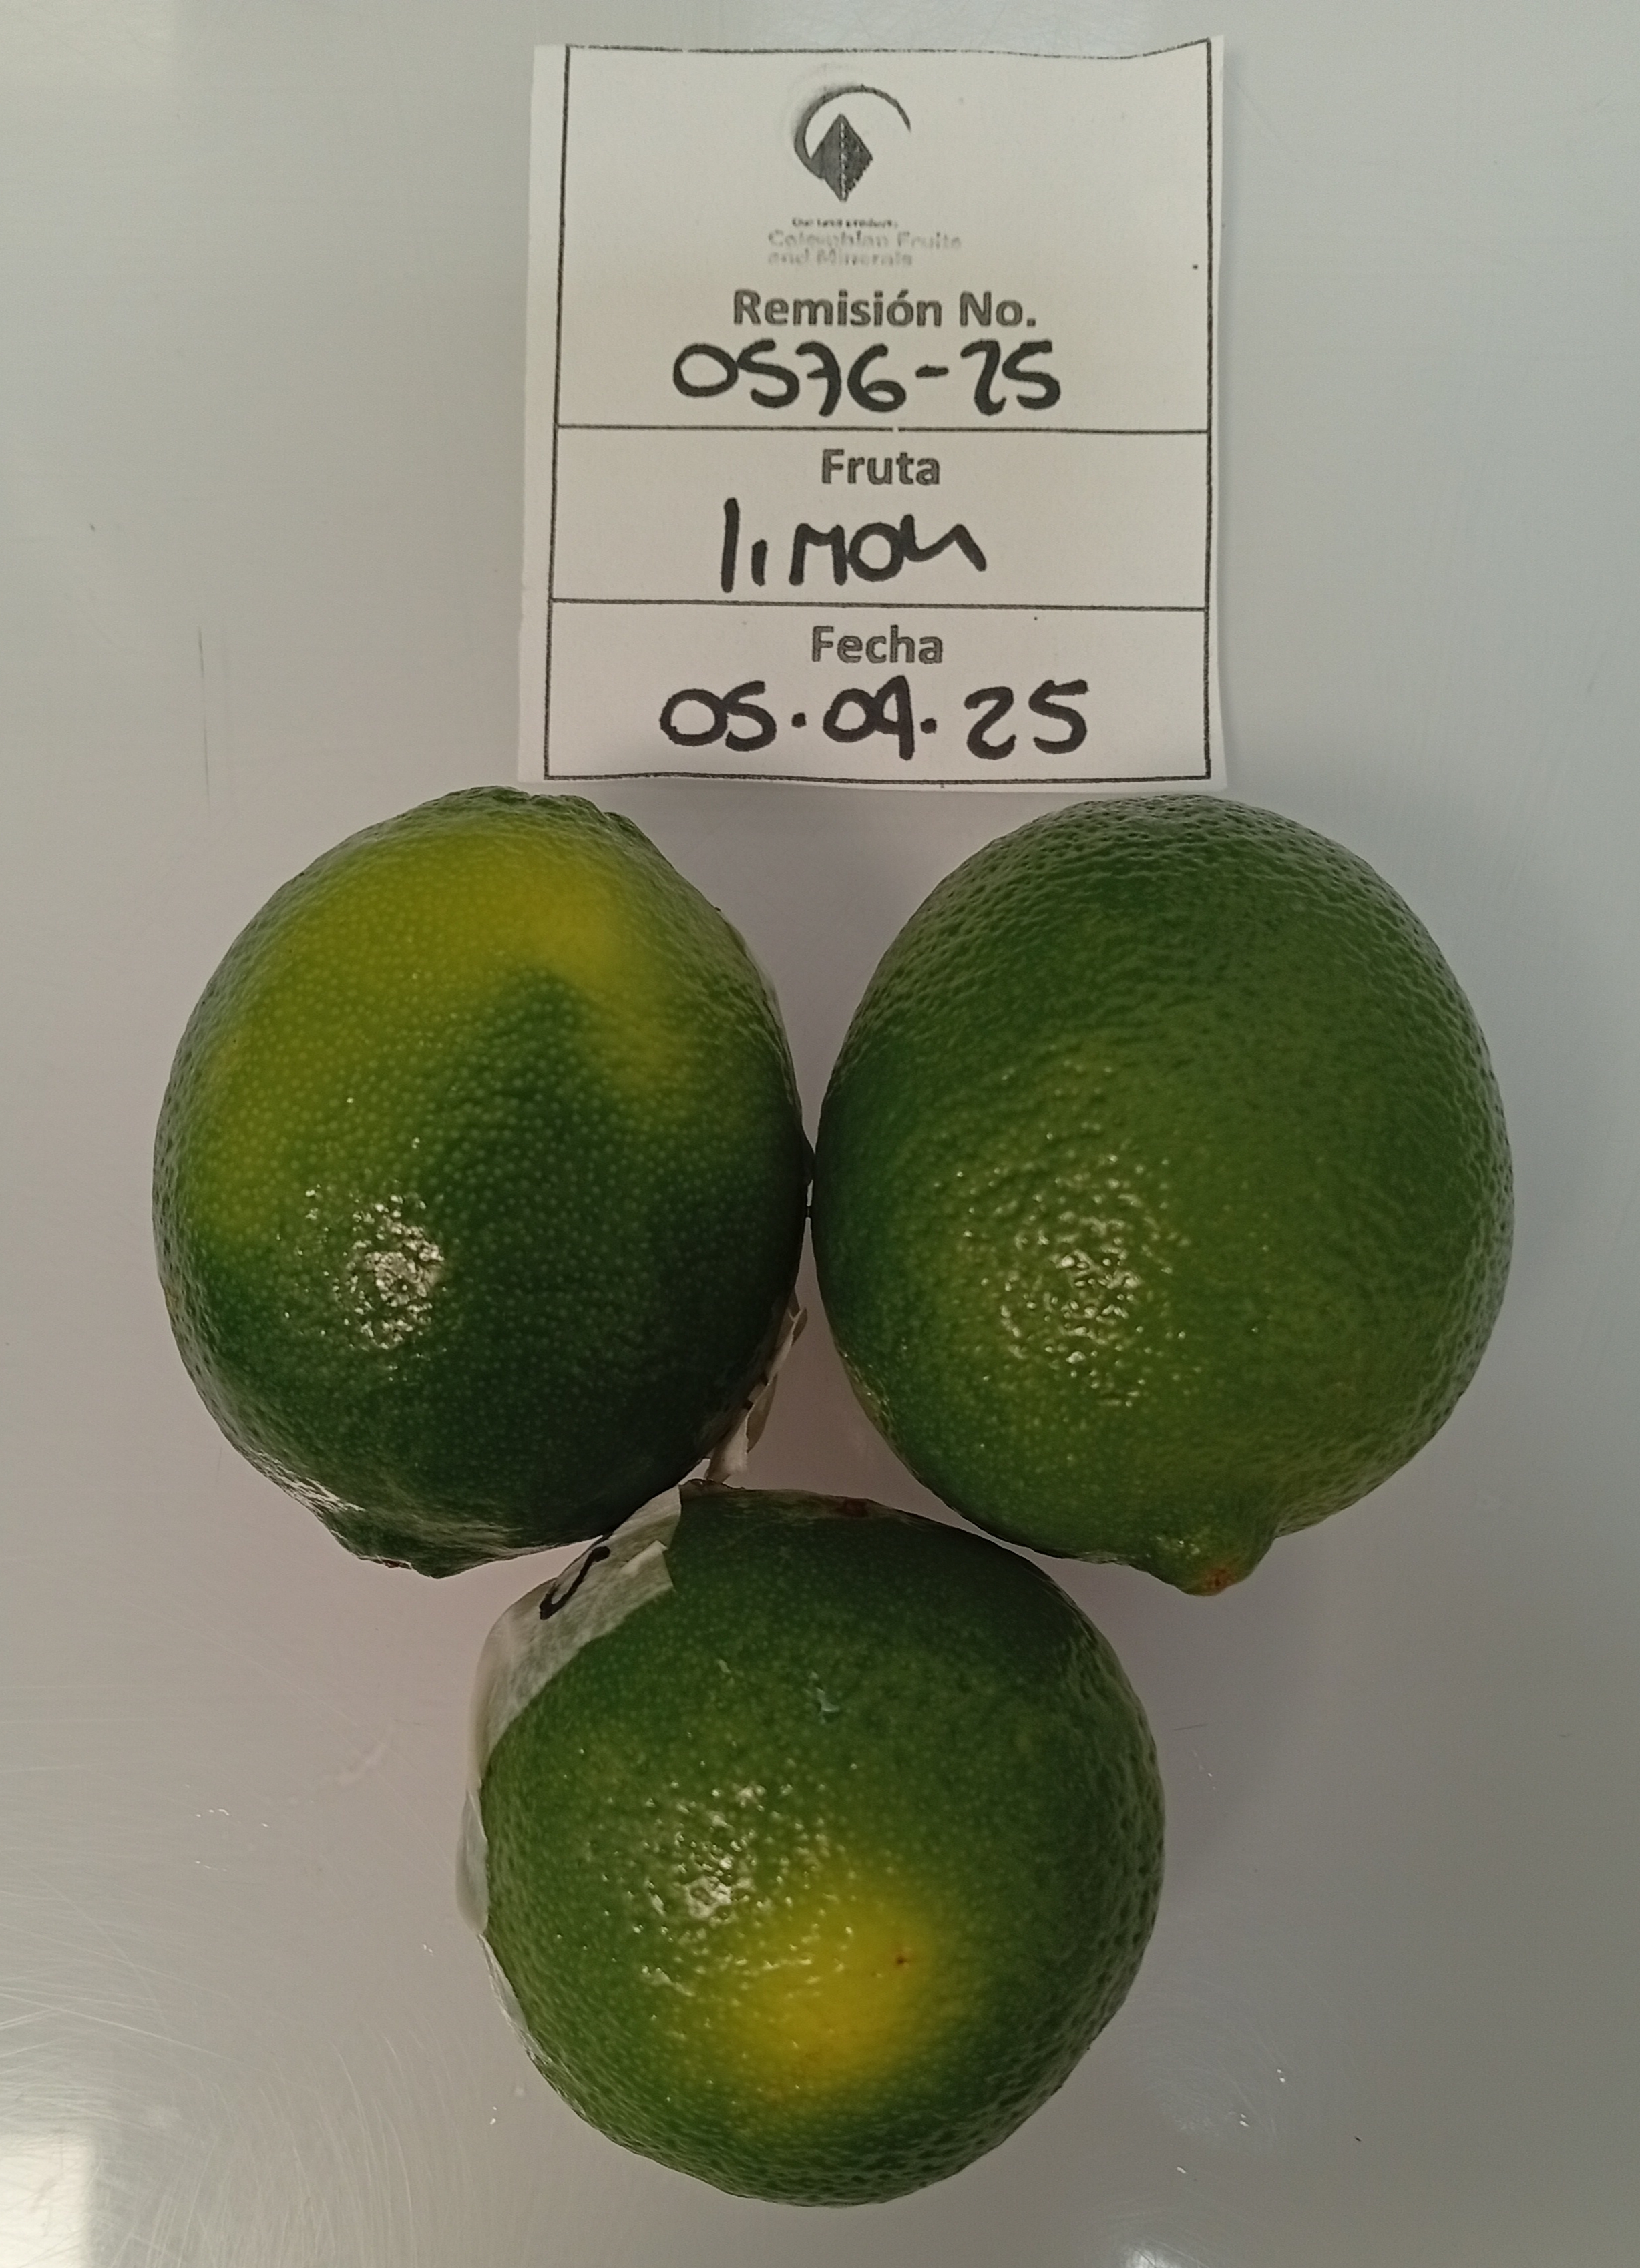 Our land products
Colombian Fruits
and Minerals
Remisión No.
0576-25
Fruta
limon
Fecha
05.04.25